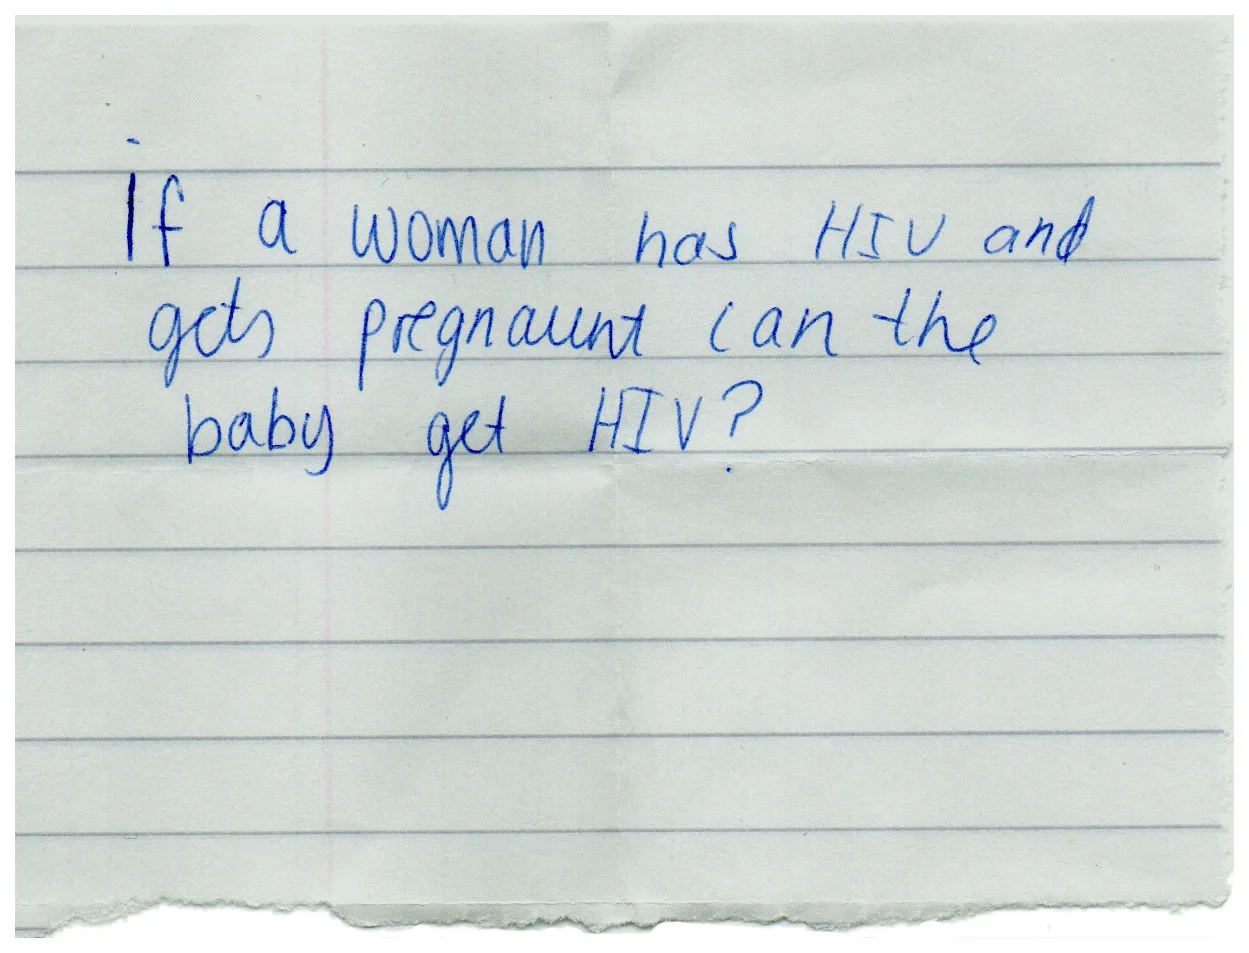 If a woman has HIV and
gets pregnaunt can the
baby get HIV?